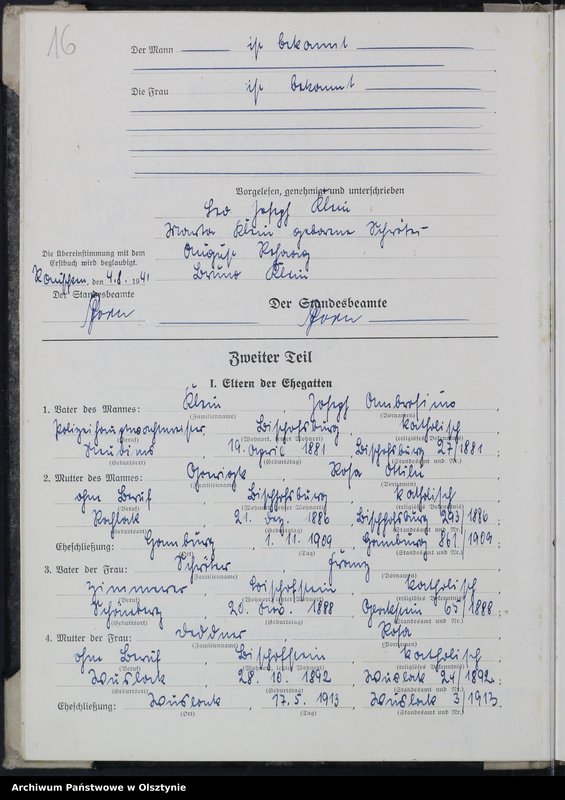 16
Der Mann ist bekannt
Die Frau ist bekannt
Vorgelesen, genehmigt und unterschrieben
Leo Joseph Klein
Maria Klein geborene Schröter
August
Bruno Klein
Die Übereinstimmung mit dem
Erstbuch wird beglaubigt.
, den 4.8. 1941
Der Standesbeamte
Der Standesbeamte
Zweiter Teil
I. Eltern der Ehegatten
1. Vater des Mannes: Klein, Joseph Ambrosius,
(Familienname) (Vornamen)
Polizeihauptwachtmeister, Bischofsburg, katholisch,
(Beruf) (Wohnort, letzter Wohnort) (religiöses Bekenntnis)
, 19. April 1881, Bischofsburg 27/1881;
(Geburtsort) (Geburtstag) (Standesamt und Nr.)
2. Mutter des Mannes: , Rosa Ottilie,
(Familienname) (Vornamen)
ohne Beruf, Bischofsburg, katholisch,
(Beruf) (Wohnort, letzter Wohnort) (religiöses Bekenntnis)
Rochlack, 21. Dez. 1886, Bischofsburg 293/1886;
(Geburtsort) (Geburtstag) (Standesamt und Nr.)
Eheschließung: Hamburg, 1. 11. 1909, Hamburg 861/1909;
(Ort) (Tag) (Standesamt und Nr.)
3. Vater der Frau: Schröter, Franz,
(Familienname) (Vornamen)
Zimmerer, Bischofstein, katholisch,
(Beruf) (Wohnort, letzter Wohnort) (religiöses Bekenntnis)
Schöneberg, 20. Nov. 1888, 65/1888;
(Geburtsort) (Geburtstag) (Standesamt und Nr.)
4. Mutter der Frau: , Rosa,
(Familienname) (Vornamen)
ohne Beruf, Bischofstein, katholisch,
(Beruf) (Wohnort, letzter Wohnort) (religiöses Bekenntnis)
Wuslack, 28. 10. 1892, Wuslack 24/1892;
(Geburtsort) (Geburtstag) (Standesamt und Nr.)
Eheschließung: Wuslack, 17. 5. 1913, Wuslack 3/1913.
(Ort) (Tag) (Standesamt und Nr.)
Archiwum Państwowe w Olsztynie